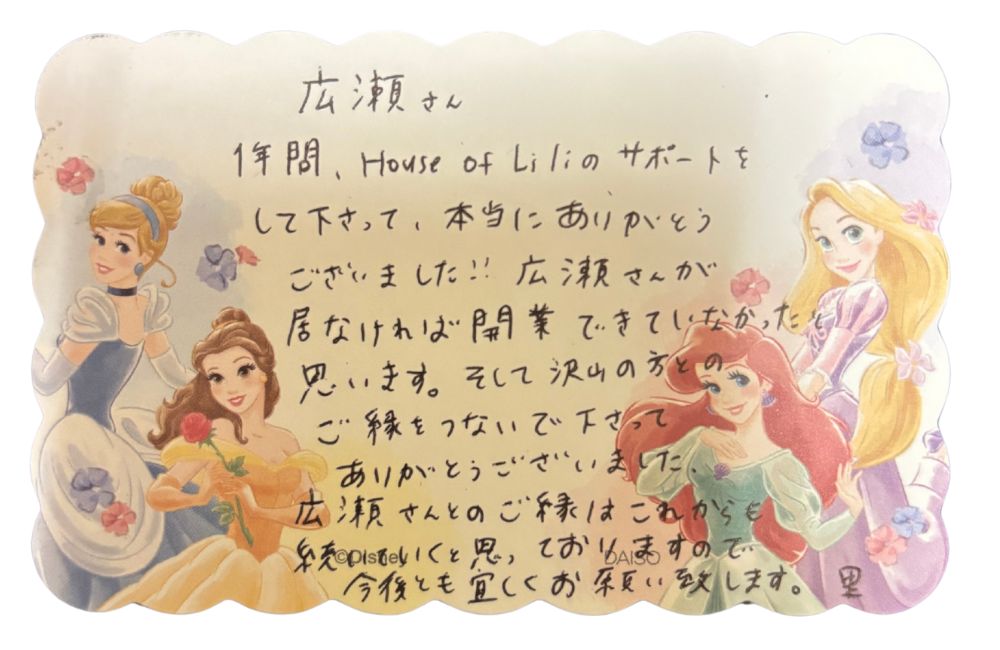 広瀬さん
1年間、House of Liliのサポートを
して下さって、本当にありがとう
ございました!! 広瀬さんが
居なければ開業できていなかったと
思います。そして沢山の方との
ご縁をつないで下さって
ありがとうございました、
広瀬さんとのご縁はこれからも
続いていくと思っておりますので
©Disney DAISO
今後とも宜しくお願い致します。 里